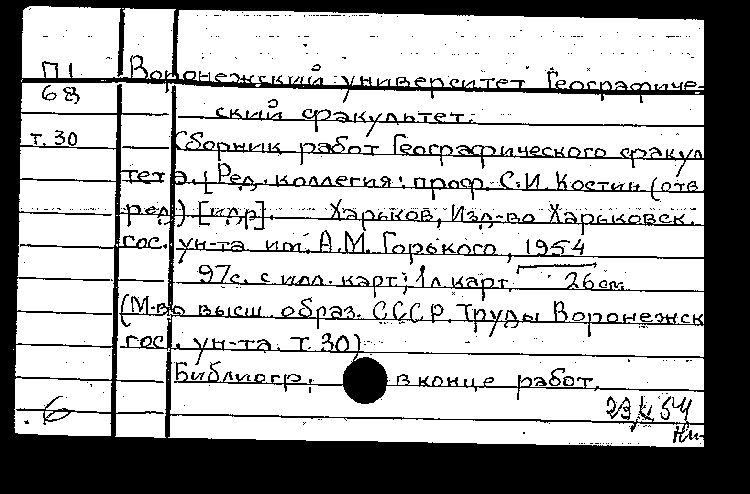 П1 Воронежский университет Географиче-
68 ский факультет.
т. 30 Сборник работ Географического факул
тета. [Ред. коллегия: проф. С.И. Костин (отв
ред.) [и др]. Харьков, Изд-во Харьковск.
гос. ун-та им. А.М. Горького, 1954
97с. с илл. карт; 1л карт. 26см
(М-во высш. образ. СССР. Труды Воронежск
гос. ун-та. т. 30)
Библиогр. в конце работ.
6 54